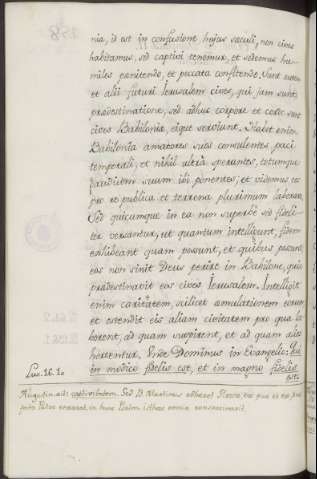 nia, id est in confusione hujus saeculi, non cives
habitamus, sed captivi tenemur, et sedemus hu-
miles penitendo, et peccata confitendo. Sunt autem
et alii futuri Jerusalem cives, qui jam sunt
praedestinatione, sed adhuc corpore et corde sunt
cives Babiloniae, eique serviunt. Habet enim
Babilonia amatores suos consulentes paci
temporali, et nihil ultra sperantes, totumque
gaudium suum ibi ponentes, et videmus eos
pro re publica et terrena plurimum laborare.
Sed quicumque in ea non superbe sed fideli-
ter versantur, ut quantum intelligunt, fidem
exhibeant quam possunt, et quibus possunt
eos non sinit Deus perire in Babilone, quia
praedestinavit eos cives Jerusalem. Intelligit
enim caritatem, scilicet aemulationem eorum
et ostendit eis aliam civitatem pro qua la-
borent, ad quam suspirent, et ad quam alios
hortentur. Unde Dominus in Evangelio: Qui
Luc. 16. 10 in modico fidelis est, et in magno fidelis
est.
Augustin. ait: captivitatem. Sed B. Martinus adhaesit